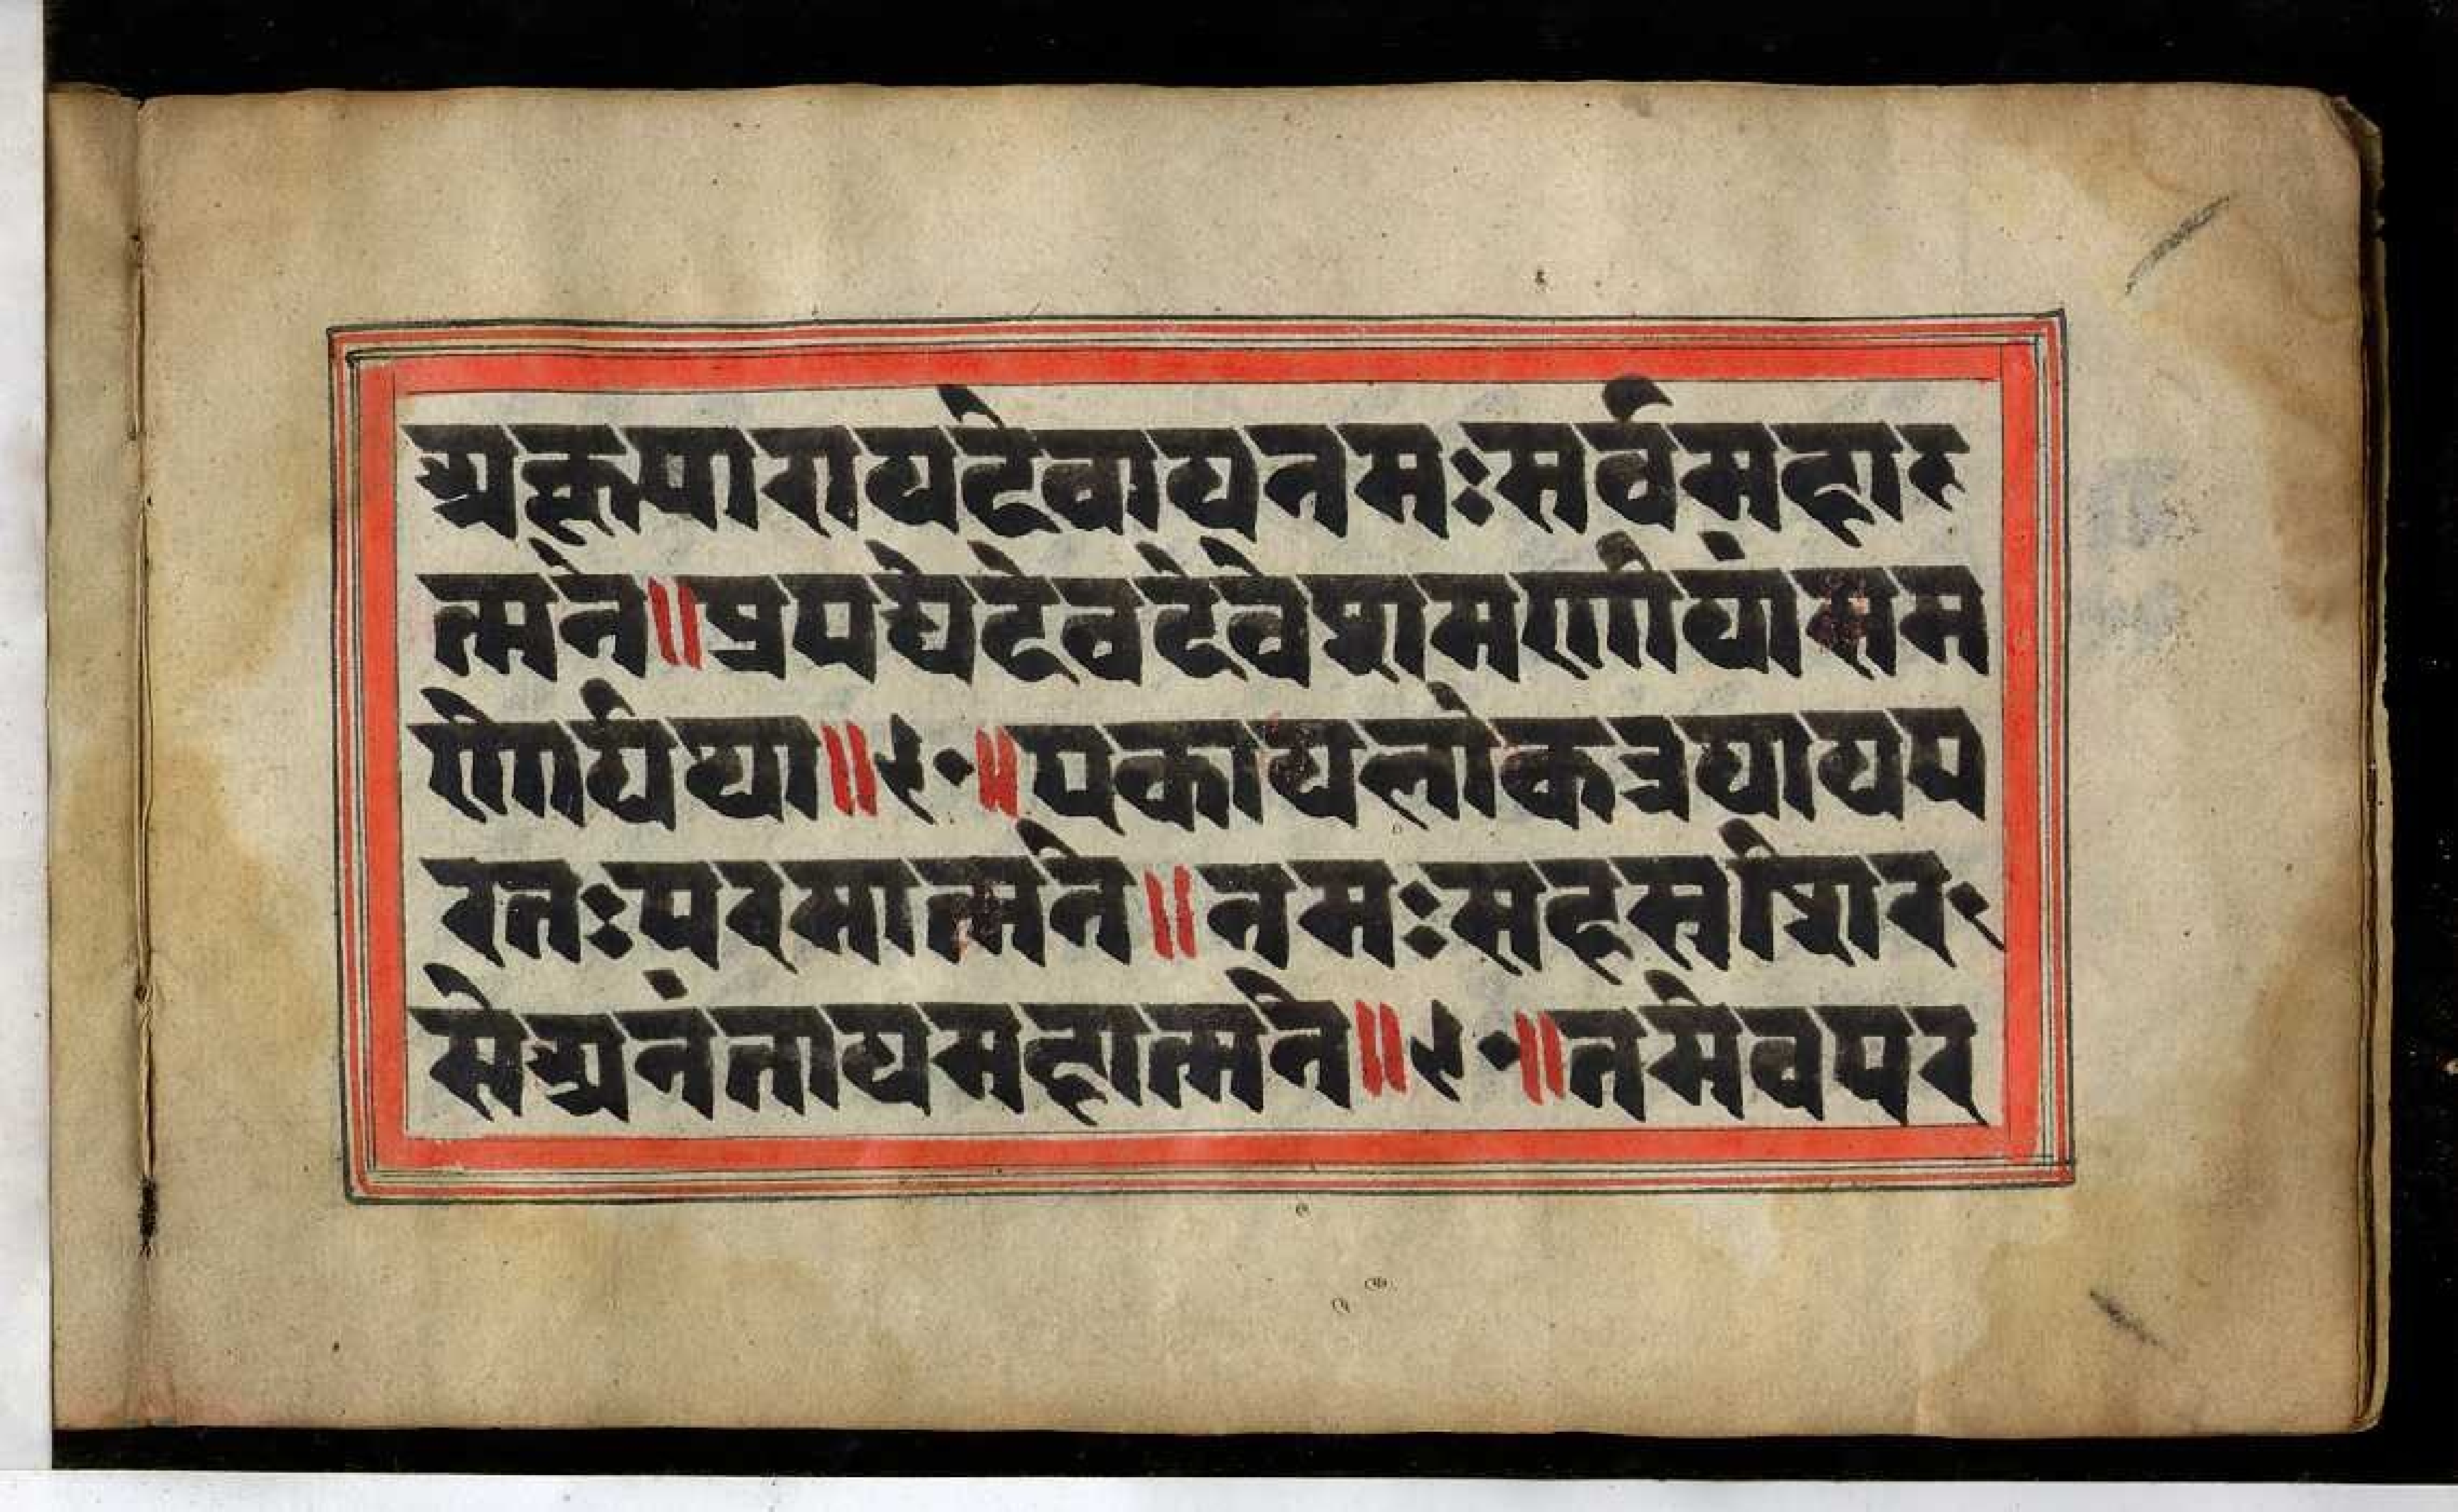 अकूपारायदेवायनमःसर्वमहार
त्मने॥प्रपद्येदेवदेवेशमणीयांसम
णीर्यथा॥१०॥एकायलोकत्रयायप
रतःपरमात्मने॥नमःसहस्रशिर
सेअनंतायमहात्मने॥१०॥तमेवपर